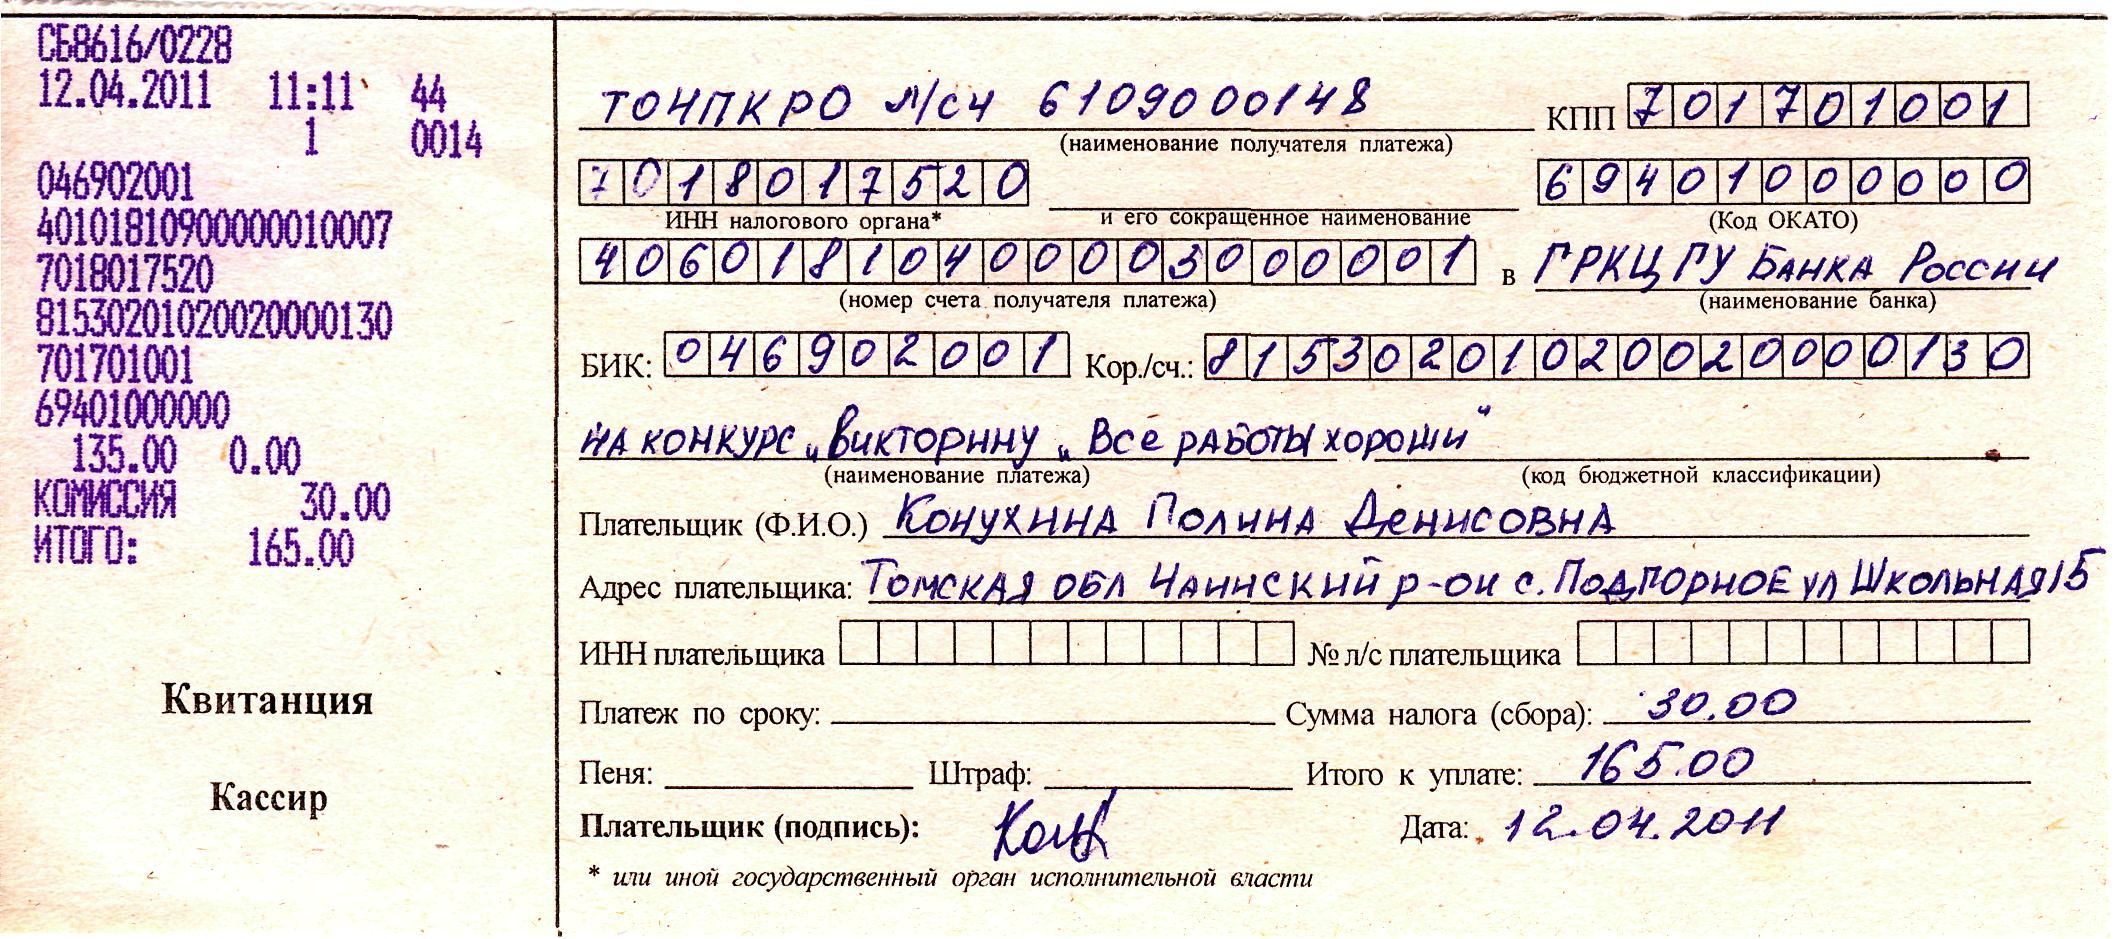 СБ8616/0228
12.04.2011 11:11 44
1 0014
046902001
40101810900000010007
7018017520
81530201020020000130
701701001
69401000000
135.00 0.00
КОМИССИЯ 30.00
ИТОГО: 165.00
Квитанция
Кассир
ТОИПКРО л/сч 6109000148 КПП 701701001
(наименование получателя платежа)
7018017520 69401000000
ИНН налогового органа* и его сокращенное наименование (Код ОКАТО)
40601810400003000001 в ГРКЦ ГУ Банка России
(номер счета получателя платежа) (наименование банка)
БИК: 046902001 Кор./сч.: 81530201020020000130
на конкурс „Викторину „Все работы хороши"
(наименование платежа) (код бюджетной классификации)
Плательщик (Ф.И.О.) Конухина Полина Денисовна
Адрес плательщика: Томская обл Чаинский р-он с. Подгорное ул Школьная 15
ИНН плательщика № л/с плательщика
Платеж по сроку: Сумма налога (сбора): 30.00
Пеня: Штраф: Итого к уплате: 165.00
Плательщик (подпись): Дата: 12.04.2011
* или иной государственный орган исполнительной власти